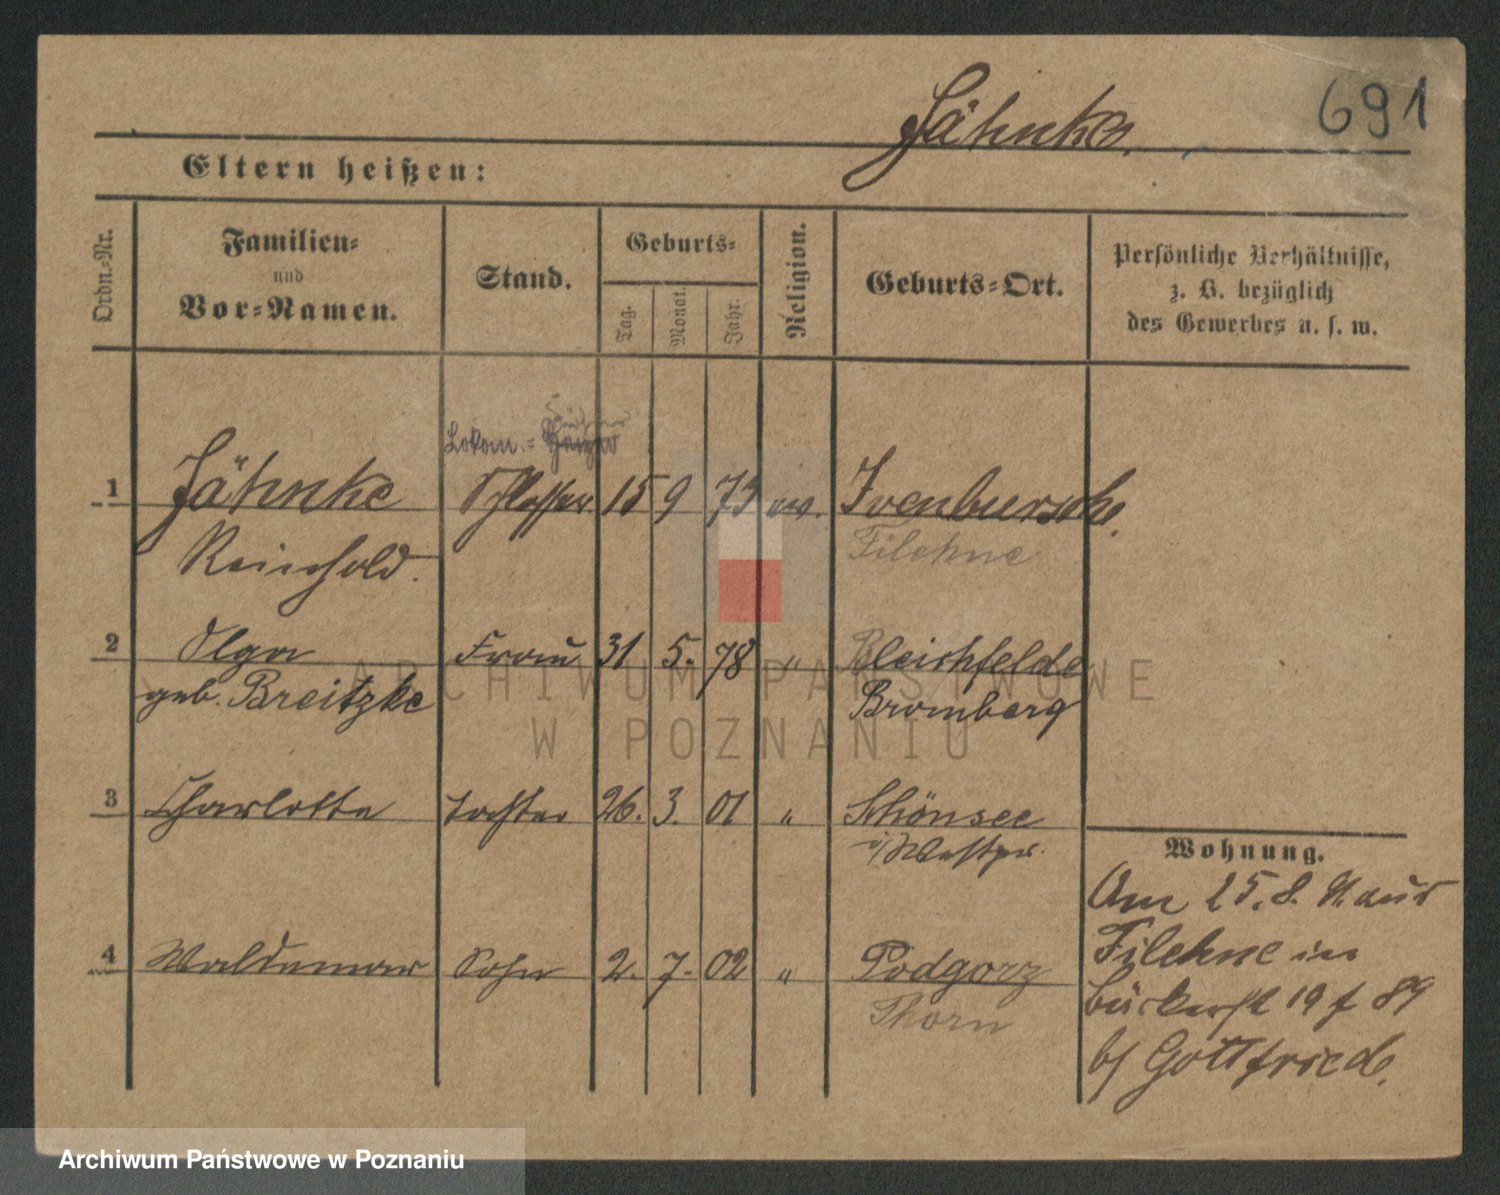 691
Jähnke.
Eltern heißen:
Ordn.-Nr.
Familien-
und
Vor-Namen.
Stand.
Geburts-
Tag.
Monat.
Jahr.
Religion.
Geburts-Ort.
Persönliche Verhältnisse,
z. B. bezüglich
des Gewerbes u. s. w.
Lokom.-
1 Jähnke Schlosser 15 9 73 ev. Ivenbusch.
Reinhold. Filehne
2 Olga Frau 31 5. 78 " Bleichfelde
geb. Breitzke Bromberg
3 Charlotte Tochter 26. 3. 01 " Schönsee
i/Westpr.
Wohnung.
4 Waldemar Sohn 2. 7. 02 " Podgorz
Thorn
Am 25. 8. aus
Filehne in
19 f 89
b/ Gottfried.
ARCHIWUM PAŃSTWOWE
W POZNANIU
Archiwum Państwowe w Poznaniu